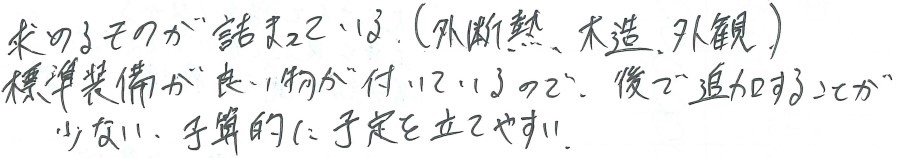 求めるものが詰まっている.(外断熱、木造、外観)
標準装備が良い物が付いているので、後で追加することが
少ない、予算的に予定を立てやすい.